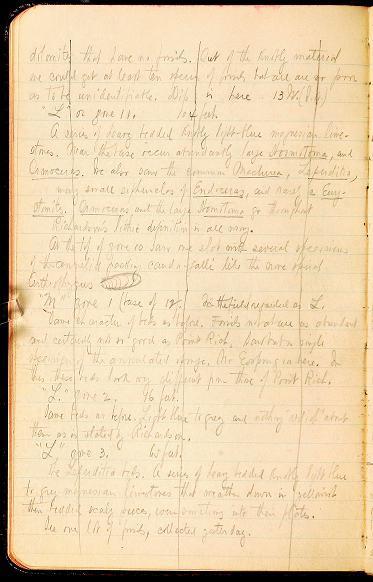 dolomites that have no fossils. Out of the knobly material
we could get at least ten species of fossils but all are so poor
as to be unidentifiable. Dip is here 13 W.
"L" or zone 11. 104 feet.
A series of heavy bedded knobly light-blue magnesian lime-
stones. Near the base occur abundantly large Hormotoma, and
We also saw the common Maclurea, Leperditia,
many small siphuncles of Endoceras, and rarely a Eury-
stomites. and the large Hormotoma go throughout
Richardson's lithic deposition is all wrong.
At the top of zone 10 saw one slab with several specimens
of the
"M" zone 1 (base of 12). In the field regarded as L.
Same character of beds as before. Fossils not at all as abundant
and certainly not so good as Point Rich, found but a single
specimen of the annulated sponge. No Eospongia here. In
this these beds look very different from that of Point Rich.
"L" zone 2. 96 feet.
Same beds as before. Light blue to grey and nothing "red" about
them as is stated by Richardson.
"L" zone 3. 65 feet.
The Leperditia beds. A series of heavy bedded knobly light blue
to grey magnesian limestones that weather down in yellowish
thin bedded scaly pieces,
See our list of fossils, collected yesterday.